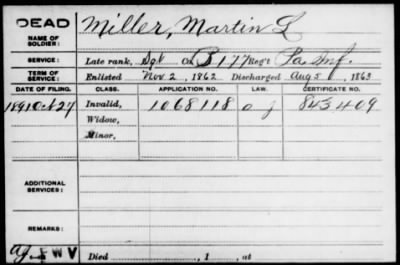 DEAD Miller, Martin L
NAME OF SOLDIER:
SERVICE: Late rank, Sgt Co B 177 Reg't Pa. Inf.
TERM OF SERVICE: Enlisted Nov. 2, 1862 Discharged Aug 5, 1863
DATE OF FILING. CLASS. APPLICATION NO. LAW. CERTIFICATE NO.
Invalid, 1068118 843409
Widow,
Minor,
ADDITIONAL SERVICES:
REMARKS:
Died , 1 , at